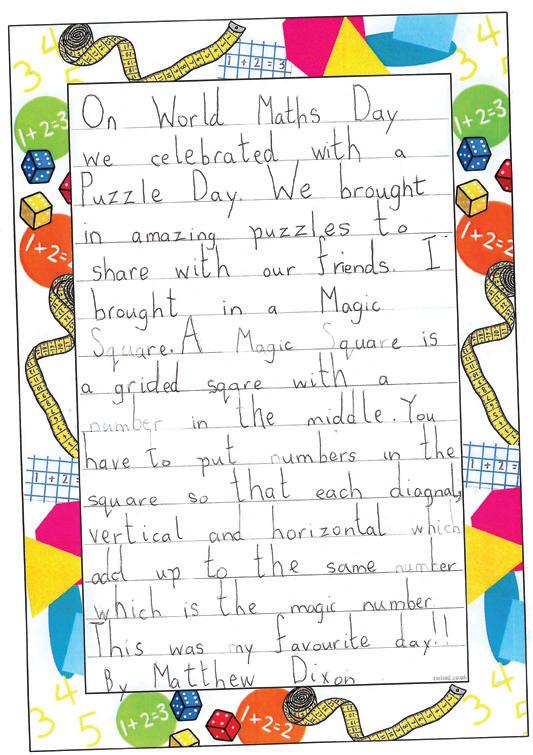 3 4 5
1 + 2 = 3
4
1+2=3
1+2=3
1+2=2
1+2=2
On World Maths Day
we celebrated with a
Puzzle Day. We brought
in amazing puzzles to
share with our friends. I
brought in a Magic
Square. A Magic Square is
a grided sqare with a
number in the middle. You
have to put numbers in the
square so that each diagnaly
vertical and horizontal which
add up to the same number
which is the magic number
This was my favourite day!!
By Matthew Dixon
twinkl.co.uk
1 + 2 =
1 + 2 =
3 4 5
1+2=3
1+2=2
3 4 5